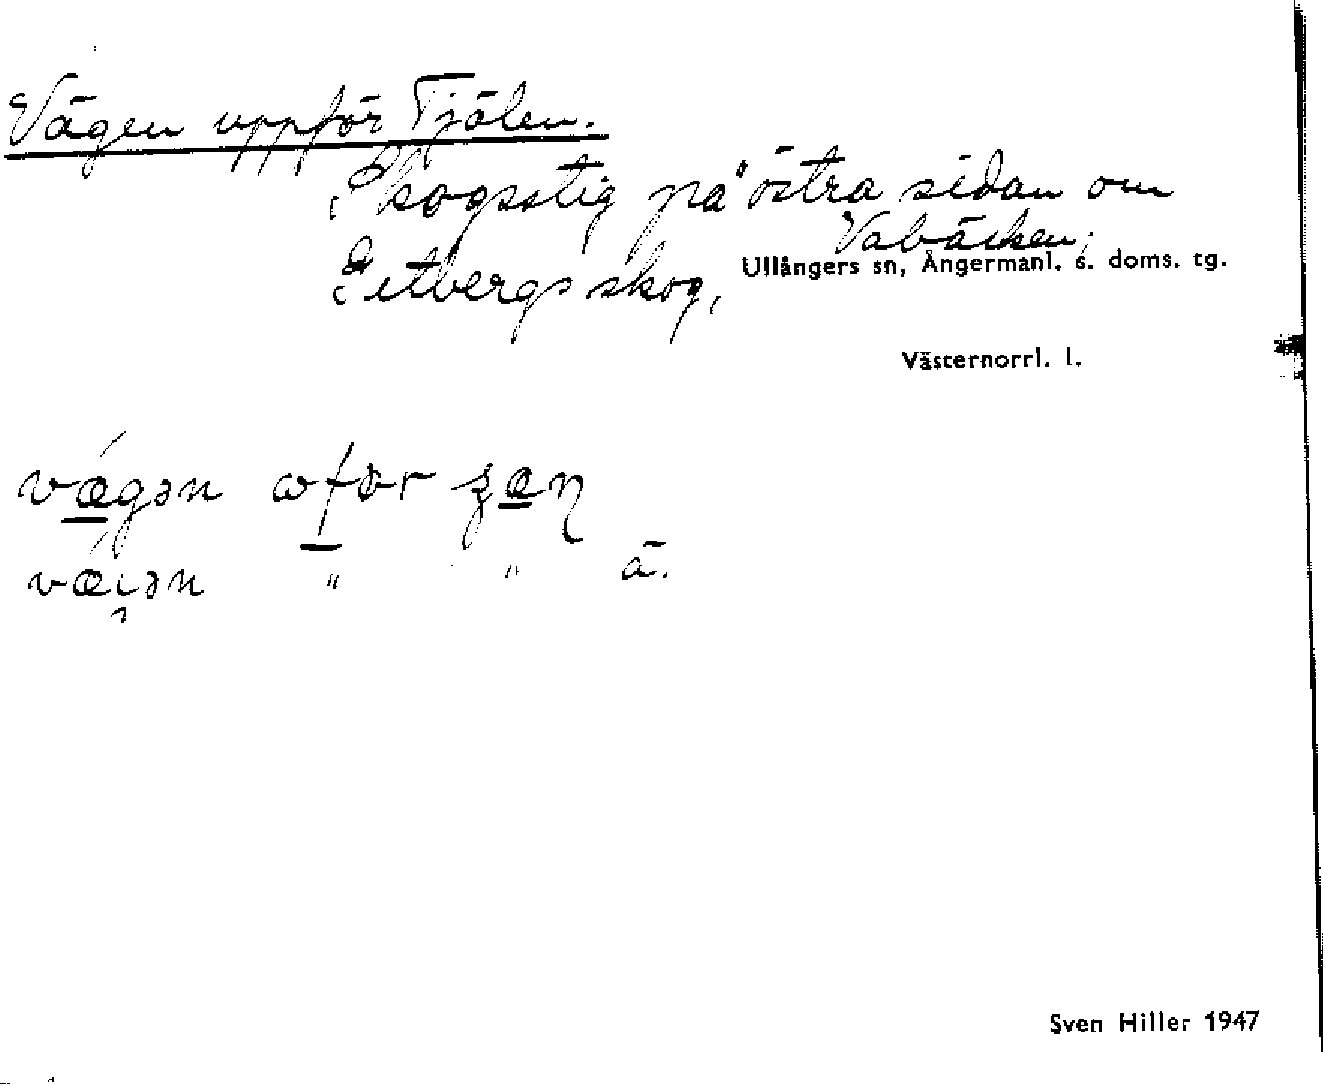 Vägen uppför Tjälen.
Skogsstig på östra sidan om
Vabäcken;
Eitbergs skog,
Ullångers sn, Ångermanl. s. doms. tg.
Västernorrl. l.
Sven Hiller 1947